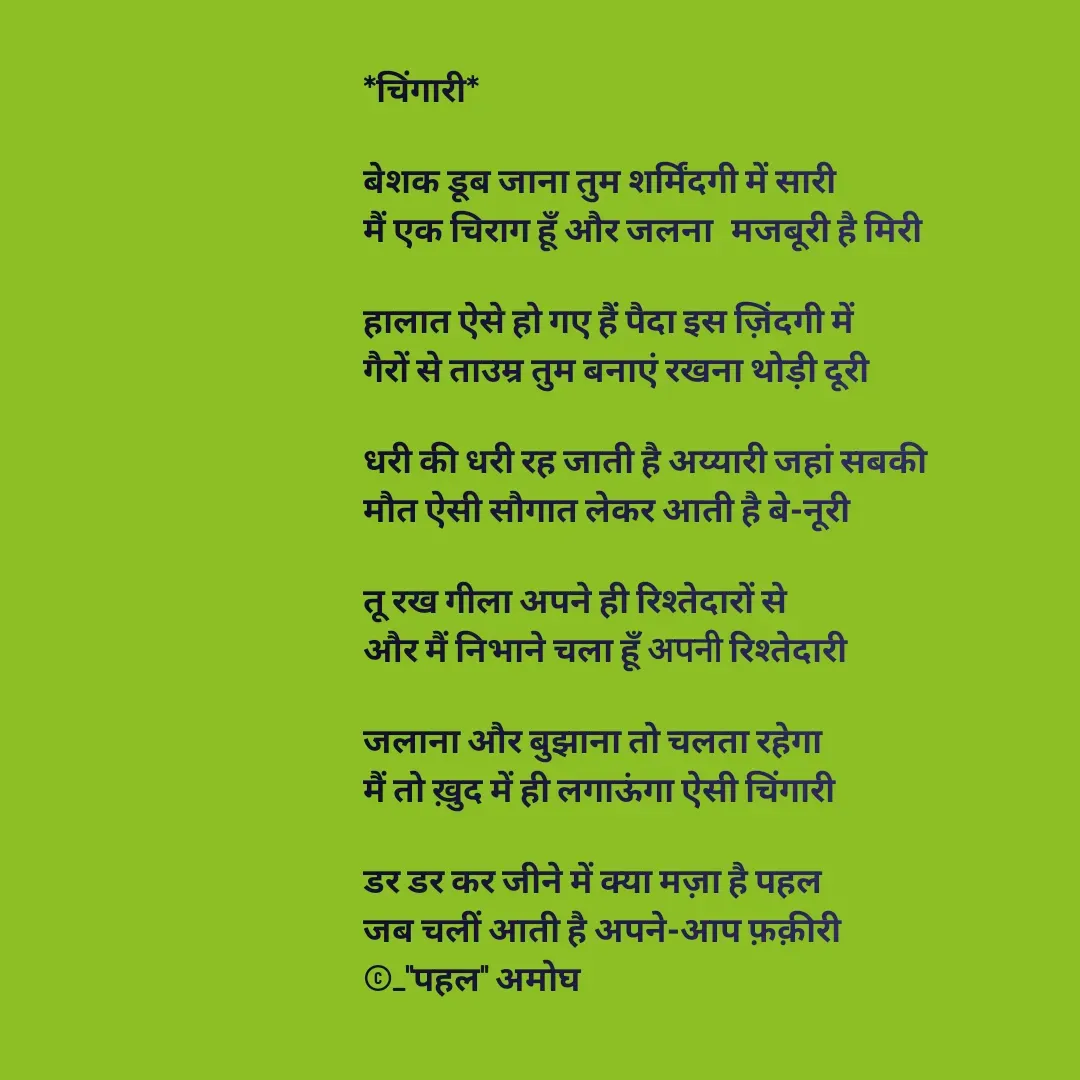 *चिंगारी*
बेशक डूब जाना तुम शर्मिंदगी में सारी
मैं एक चिराग हूँ और जलना मजबूरी है मिरी
हालात ऐसे हो गए हैं पैदा इस ज़िंदगी में
गैरों से ताउम्र तुम बनाएं रखना थोड़ी दूरी
धरी की धरी रह जाती है अय्यारी जहां सबकी
मौत ऐसी सौगात लेकर आती है बे-नूरी
तू रख गीला अपने ही रिश्तेदारों से
और मैं निभाने चला हूँ अपनी रिश्तेदारी
जलाना और बुझाना तो चलता रहेगा
मैं तो ख़ुद में ही लगाऊंगा ऐसी चिंगारी
डर डर कर जीने में क्या मज़ा है पहल
जब चलीं आती है अपने-आप फ़क़ीरी
©_"पहल" अमोघ